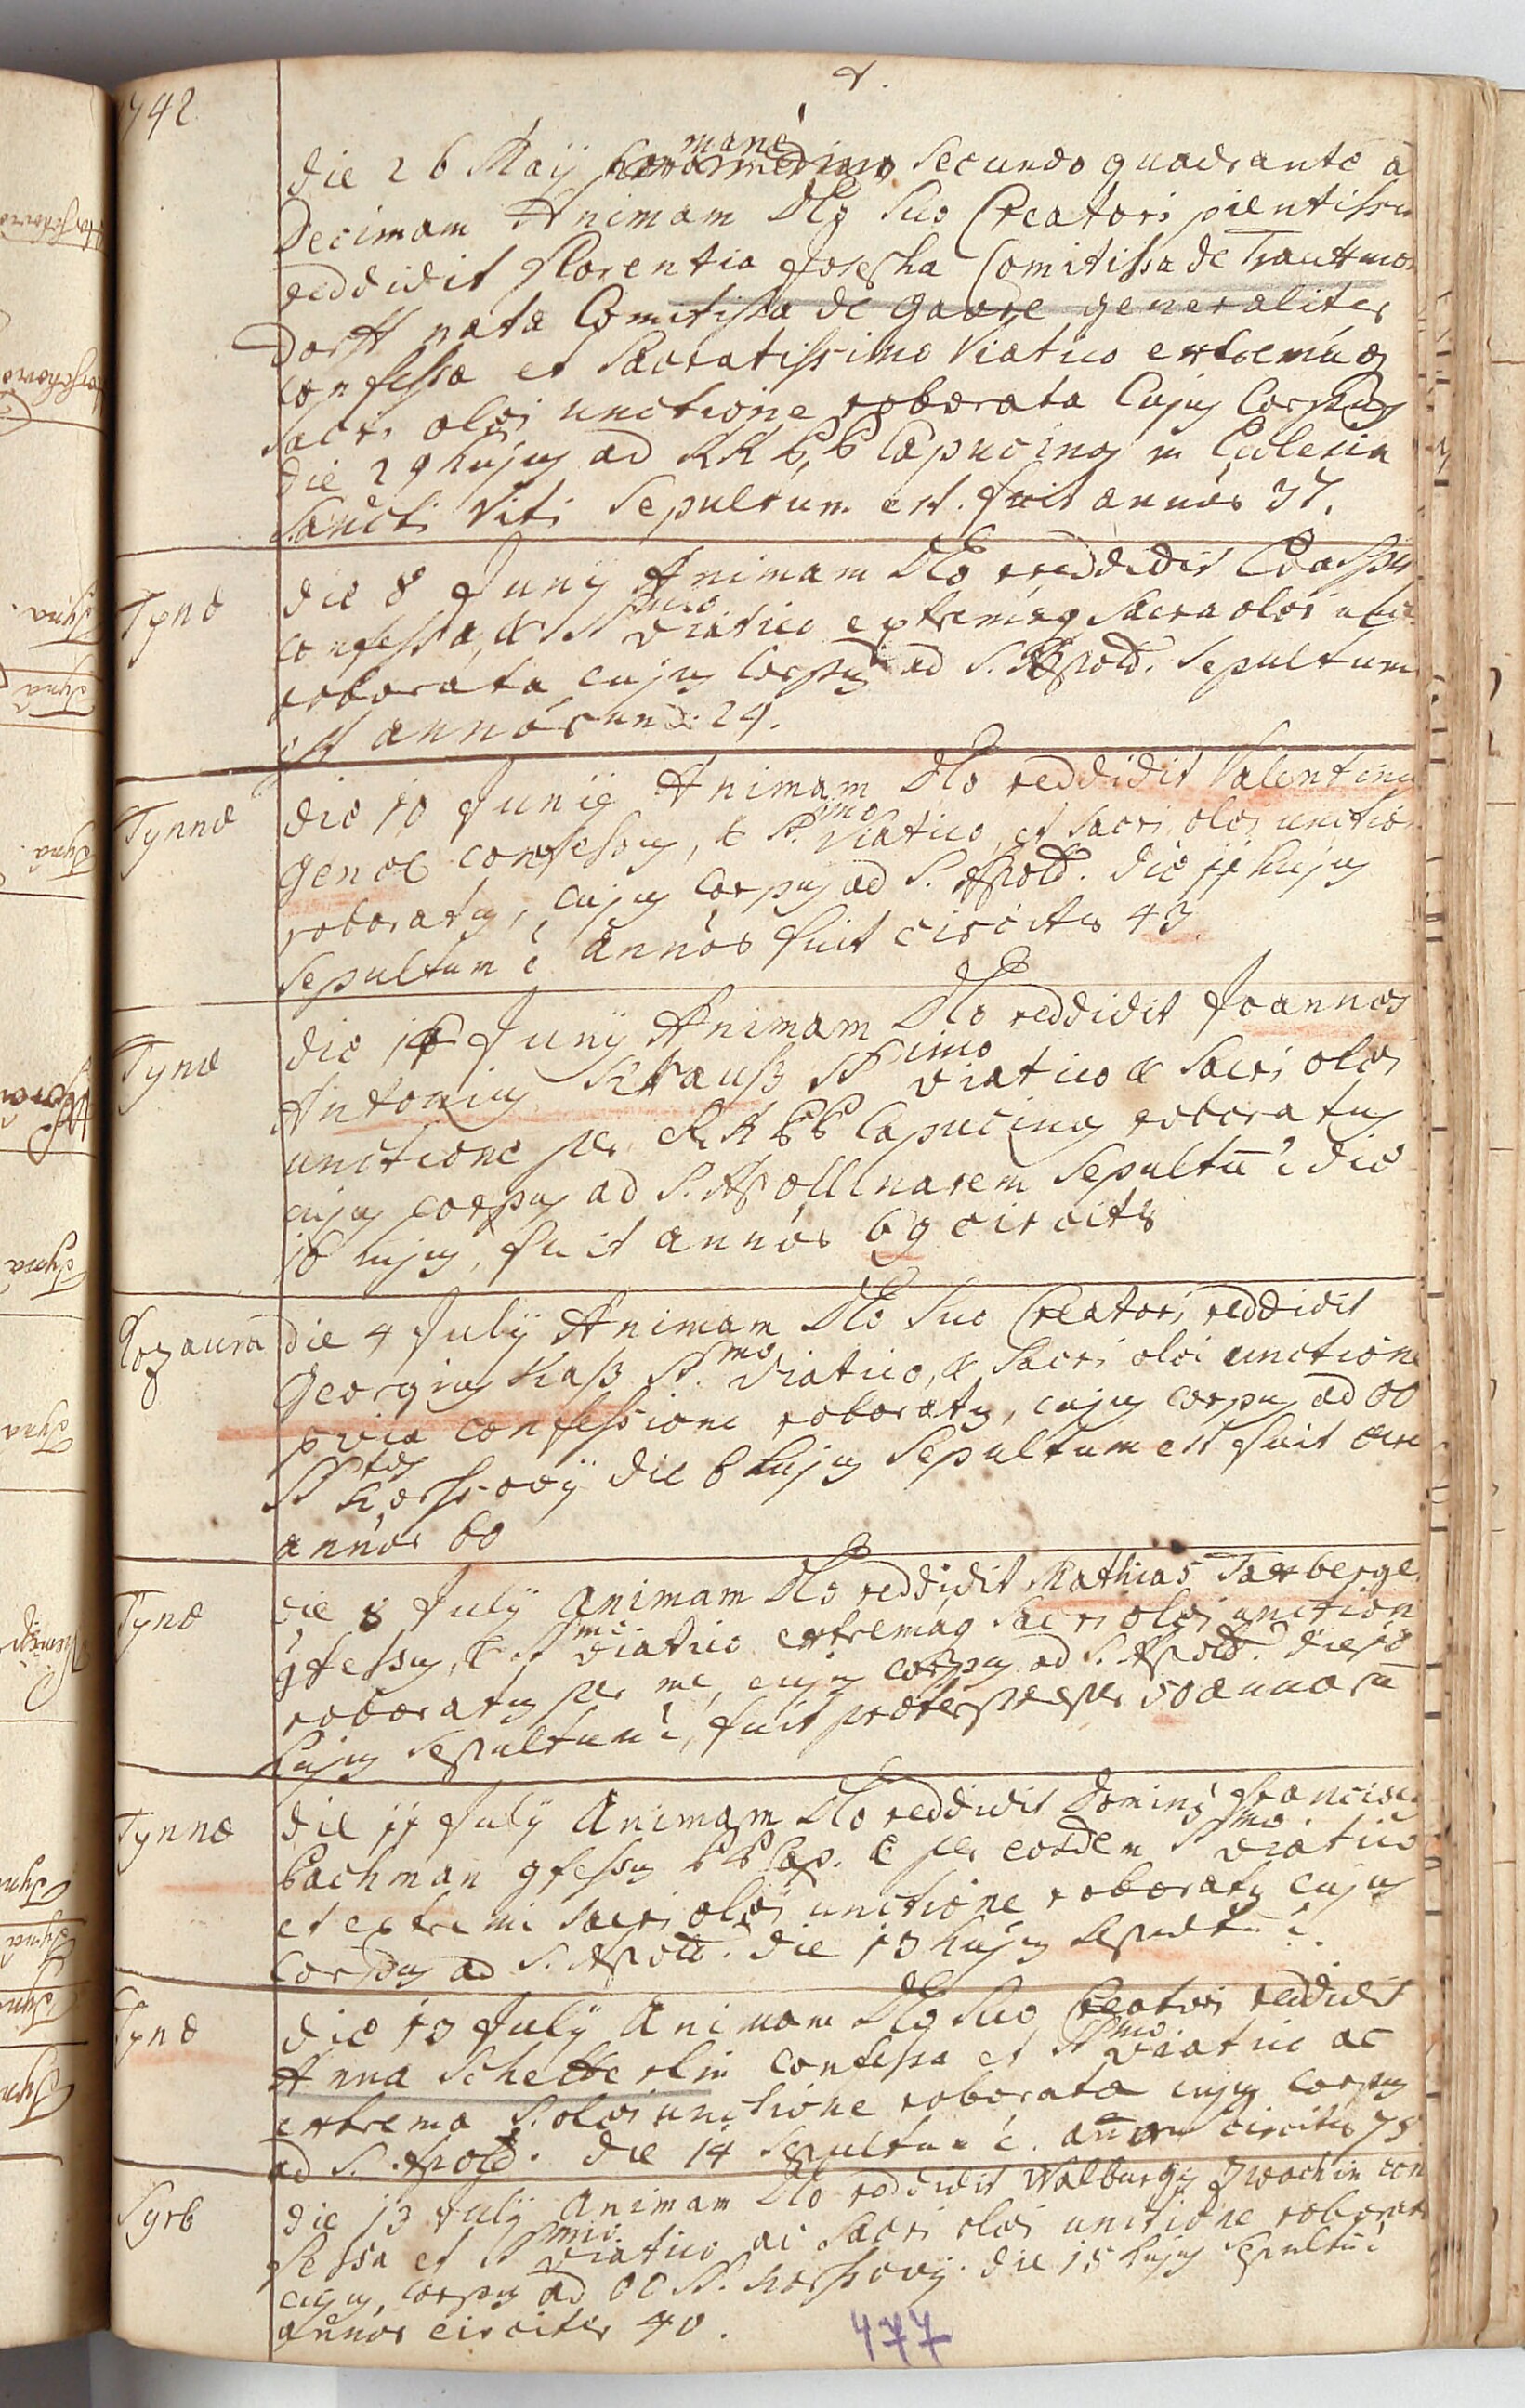 1742.
die 26 Maij mane Secundo quadrante a
Decimam Animam Deo Suo Creatori pientissi
reddidit Florentia Josepha Comitissa de Trautmon
dorff nata Comitissa de Gavre generaliter
confessa et Sacratissimo Viatico extremáq
Sacri olei unctione roborata Cujus Corpus
die 29 hujus ad RR PP Capucinos in Eclesia
Sancti Viti Sepultum est. fuit annór 37.
Tynæ
die 8 Junij Animam Deo reddidit
confessa, & SSimo viatico extremáq Sacra olei unct
roborata cujus Corpus ad S. Apoll. Sepultum
est annór 24.
Tynnæ
die 10 Junij Animam Deo reddidit Valentinus
Genoe confessus, & SS.imo Viatico, et Sacri olei unction
roboratus, cujus Corpus ad S. Apoll. die 11 hujus
Sepultum é annór fuit circiter 43.
Tynæ
die 16 Junij Animam Deo reddidit Joannes
Antonius Strauß SSimo viatico & Sacri olei
unctione per RR PP Capucinos roboratus
cujus corpus ad S. Apollinarem Sepultū é die
18 hujus, fuit annór 69 circiter
Kozaurā
die 4 Julij Animam Deo Suo Creatori reddidit
Georgius Kaß SS.mo Viatico, & Sacri olei unctione
pvia confessione roboratus, cujus corpus ad OO
SStos Horssovij die 6 hujus Sepultum est fuit circ
annór 60
Tynæ
die 8 Julij animam Deo reddidit Mathias Taxberge
gfessus, & SSmo viatico extremáq Sacri olei unction
roboratus per me, cujus corpus ad S. Apoll. die 10
hujus Sepultum é, fuit praeter propter 50 annorū
Tynnæ
die 11 Julij Animam Deo reddidit Dominus Franciscus
Pachman gfessus PP Cap. & per eosdem SSmo viatico
et extremi Sacri olei unctione roboratus cujus
Corpus ad S. Apoll. die 13 hujus Sepultū é.
Tynæ
die 13 Julij Animam Deo Suo Creatori reddidit
Anna Schetterlin confessa et SSmo viatico ac
extrema S. olei unctione roborata cujus corpus
ad S. Apoll. die 14 Sepultum é. annor circiter 75
Syrb
die 13 Julij animam Deo reddidit Walburga Zwachin con
fessa et SSmo viatico ac Sacri olei unctione roborata
cujus corpus ad OO SS. Horssovij. die 15 hujus Sepultū é
annór circiter 40.
477